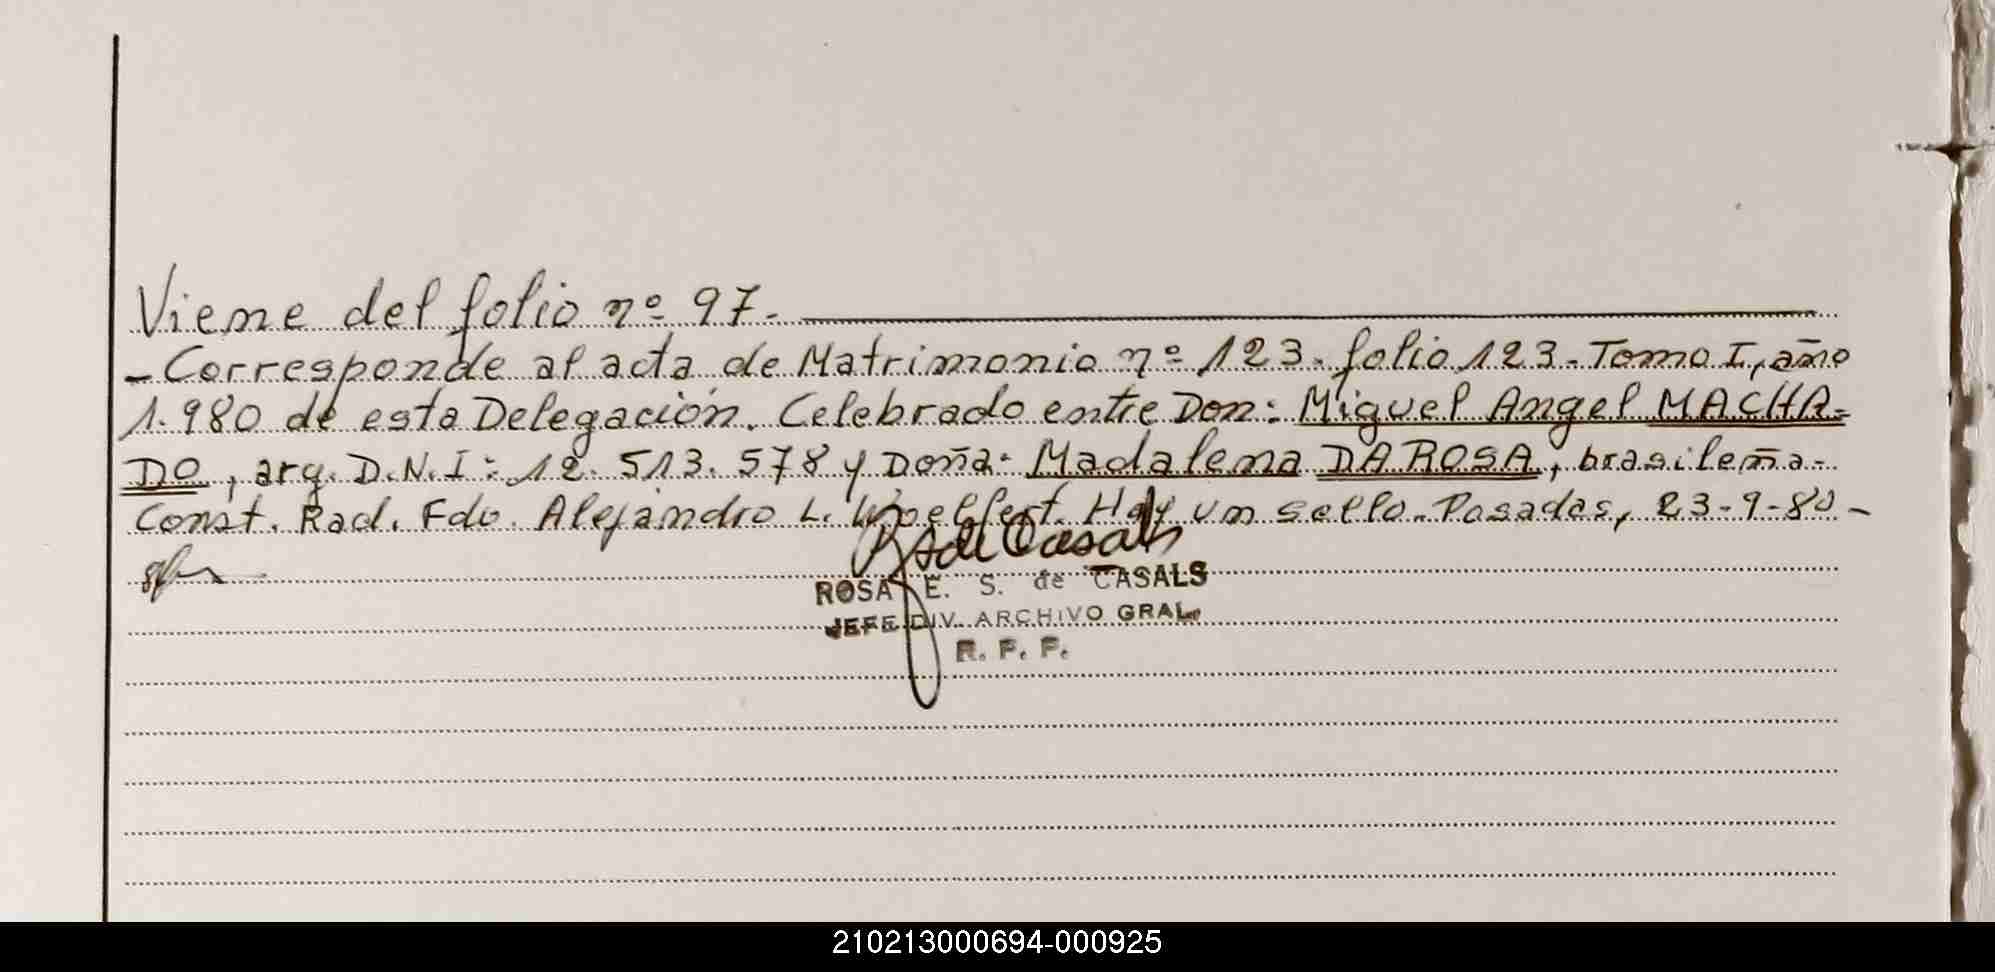 Viene del folio nº 97.-
- Corresponde al acta de Matrimonio nº 123. folio 123 - Tomo I, año
1.980 de esta Delegación. Celebrado entre Don: Miguel Angel MACHA-
DO, arg. D.N.I: 12.513.578 y Doña: Madalena DA ROSA, brasileña.-
Const. Rad. Fdo. Alejandro L. Woelfert. Hay un sello. Posadas, 23-9-80-
Rosa de Casals
ROSA E. S. de CASALS
JEFE DIV. ARCHIVO GRAL.
R. P. P.
210213000694-000925